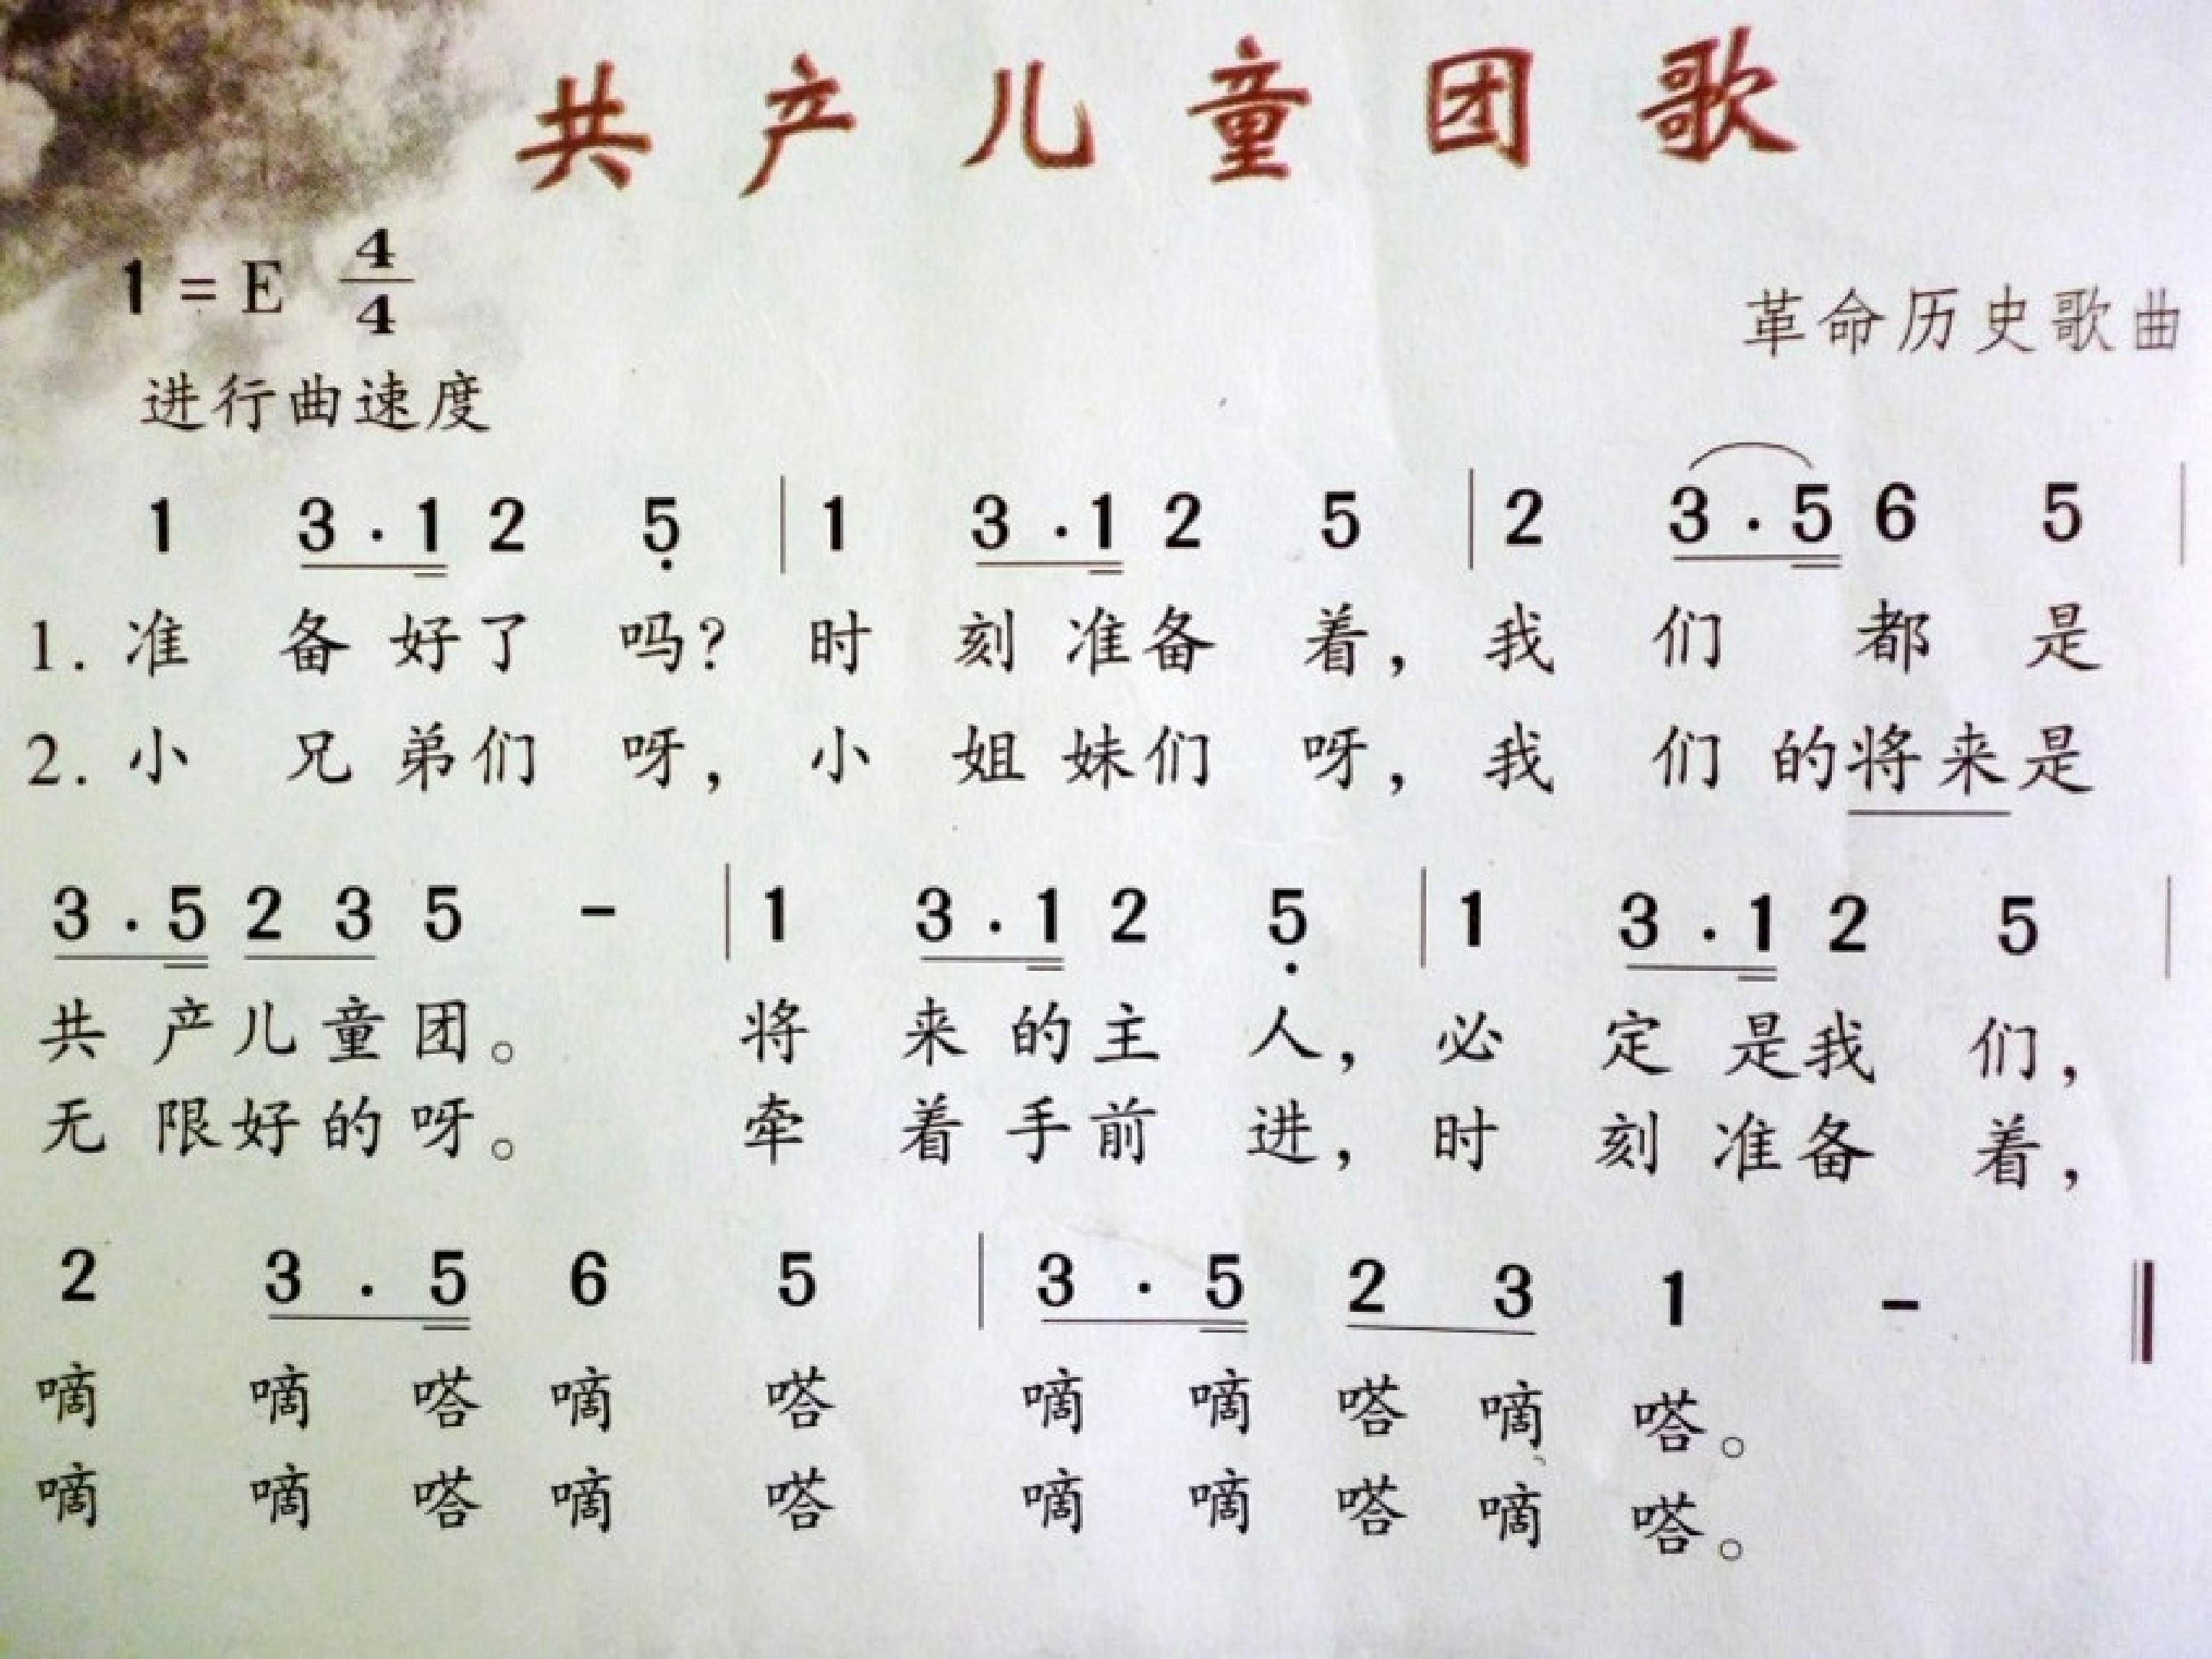 共产儿童团歌
1=E 4/4
革命历史歌曲
进行曲速度
1 3·1 2 5̣ | 1 3·1 2 5 | 2 3·5 6 5 |
1. 准 备 好 了 吗? 时 刻 准 备 着, 我 们 都 是
2. 小 兄 弟 们 呀, 小 姐 妹 们 呀, 我 们 的 将 来 是
3·5 2 3 5 - | 1 3·1 2 5̣ | 1 3·1 2 5 |
共 产 儿 童 团。 将 来 的 主 人, 必 定 是 我 们,
无 限 好 的 呀。 牵 着 手 前 进, 时 刻 准 备 着,
2 3·5 6 5 | 3·5 2 3 1 - ‖
嘀 嘀 嗒 嘀 嗒 嘀 嘀 嗒 嘀 嗒。
嘀 嘀 嗒 嘀 嗒 嘀 嘀 嗒 嘀 嗒。